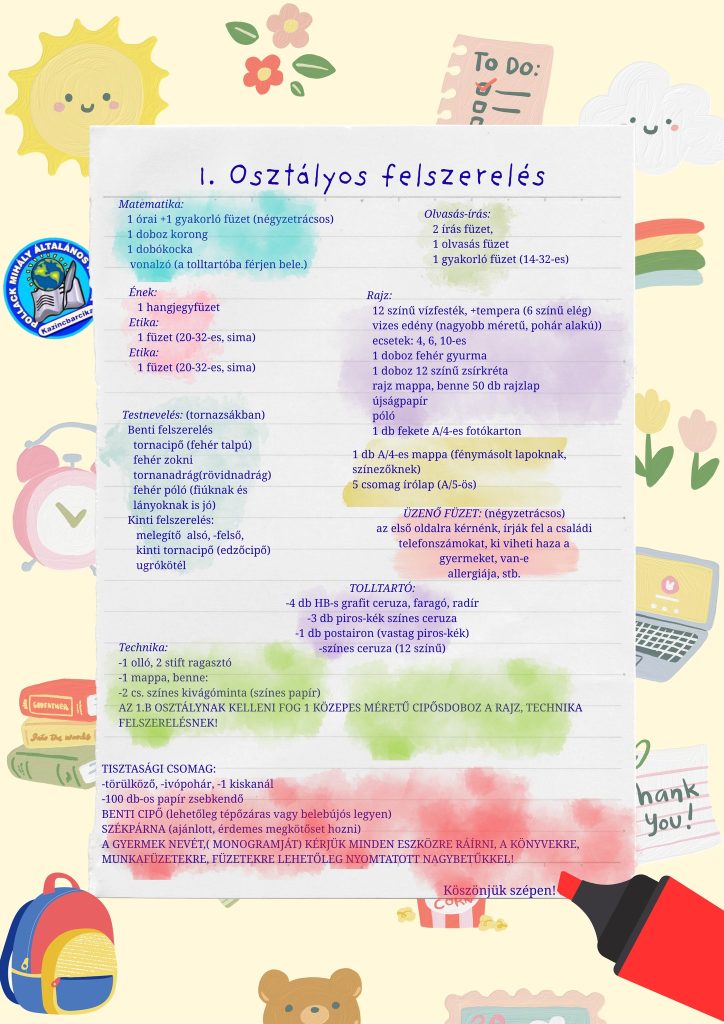 To Do:
1. Osztályos felszerelés
Matematika:
1 órai +1 gyakorló füzet (négyzetrácsos)
1 doboz korong
1 dobókocka
vonalzó (a tolltartóba férjen bele.)
Olvasás-írás:
2 írás füzet,
1 olvasás füzet
1 gyakorló füzet (14-32-es)
POLLACK MIHÁLY ÁLTALÁNOS
Kazincbarcika
Ének:
1 hangjegyfüzet
Etika:
1 füzet (20-32-es, sima)
Etika:
1 füzet (20-32-es, sima)
Rajz:
12 színű vízfesték, +tempera (6 színű elég)
vizes edény (nagyobb méretű, pohár alakú))
ecsetek: 4, 6, 10-es
1 doboz fehér gyurma
1 doboz 12 színű zsírkréta
rajz mappa, benne 50 db rajzlap
újságpapír
póló
1 db fekete A/4-es fotókarton
Testnevelés: (tornazsákban)
Benti felszerelés
tornacipő (fehér talpú)
fehér zokni
tornanadrág(rövidnadrág)
fehér póló (fiúknak és
lányoknak is jó)
Kinti felszerelés:
melegítő alsó, -felső,
kinti tornacipő (edzőcipő)
ugrókötél
1 db A/4-es mappa (fénymásolt lapoknak,
színezőknek)
5 csomag írólap (A/5-ös)
ÜZENŐ FÜZET: (négyzetrácsos)
az első oldalra kérnénk, írják fel a családi
telefonszámokat, ki viheti haza a
gyermeket, van-e
allergiája, stb.
TOLLTARTÓ:
-4 db HB-s grafit ceruza, faragó, radír
-3 db piros-kék színes ceruza
-1 db postairon (vastag piros-kék)
-színes ceruza (12 színű)
Technika:
-1 olló, 2 stift ragasztó
-1 mappa, benne:
-2 cs. színes kivágóminta (színes papír)
AZ 1.B OSZTÁLYNAK KELLENI FOG 1 KÖZEPES MÉRETŰ CIPŐSDOBOZ A RAJZ, TECHNIKA
FELSZERELÉSNEK!
TISZTASÁGI CSOMAG:
-törülköző, -ivópohár, -1 kiskanál
-100 db-os papír zsebkendő
BENTI CIPŐ (lehetőleg tépőzáras vagy belebújós legyen)
SZÉKPÁRNA (ajánlott, érdemes megkötőset hozni)
A GYERMEK NEVÉT,( MONOGRAMJÁT) KÉRJÜK MINDEN ESZKÖZRE RÁÍRNI, A KÖNYVEKRE,
MUNKAFÜZETEKRE, FÜZETEKRE LEHETŐLEG NYOMTATOTT NAGYBETŰKKEL!
Köszönjük szépen!
hank
you!
CORN